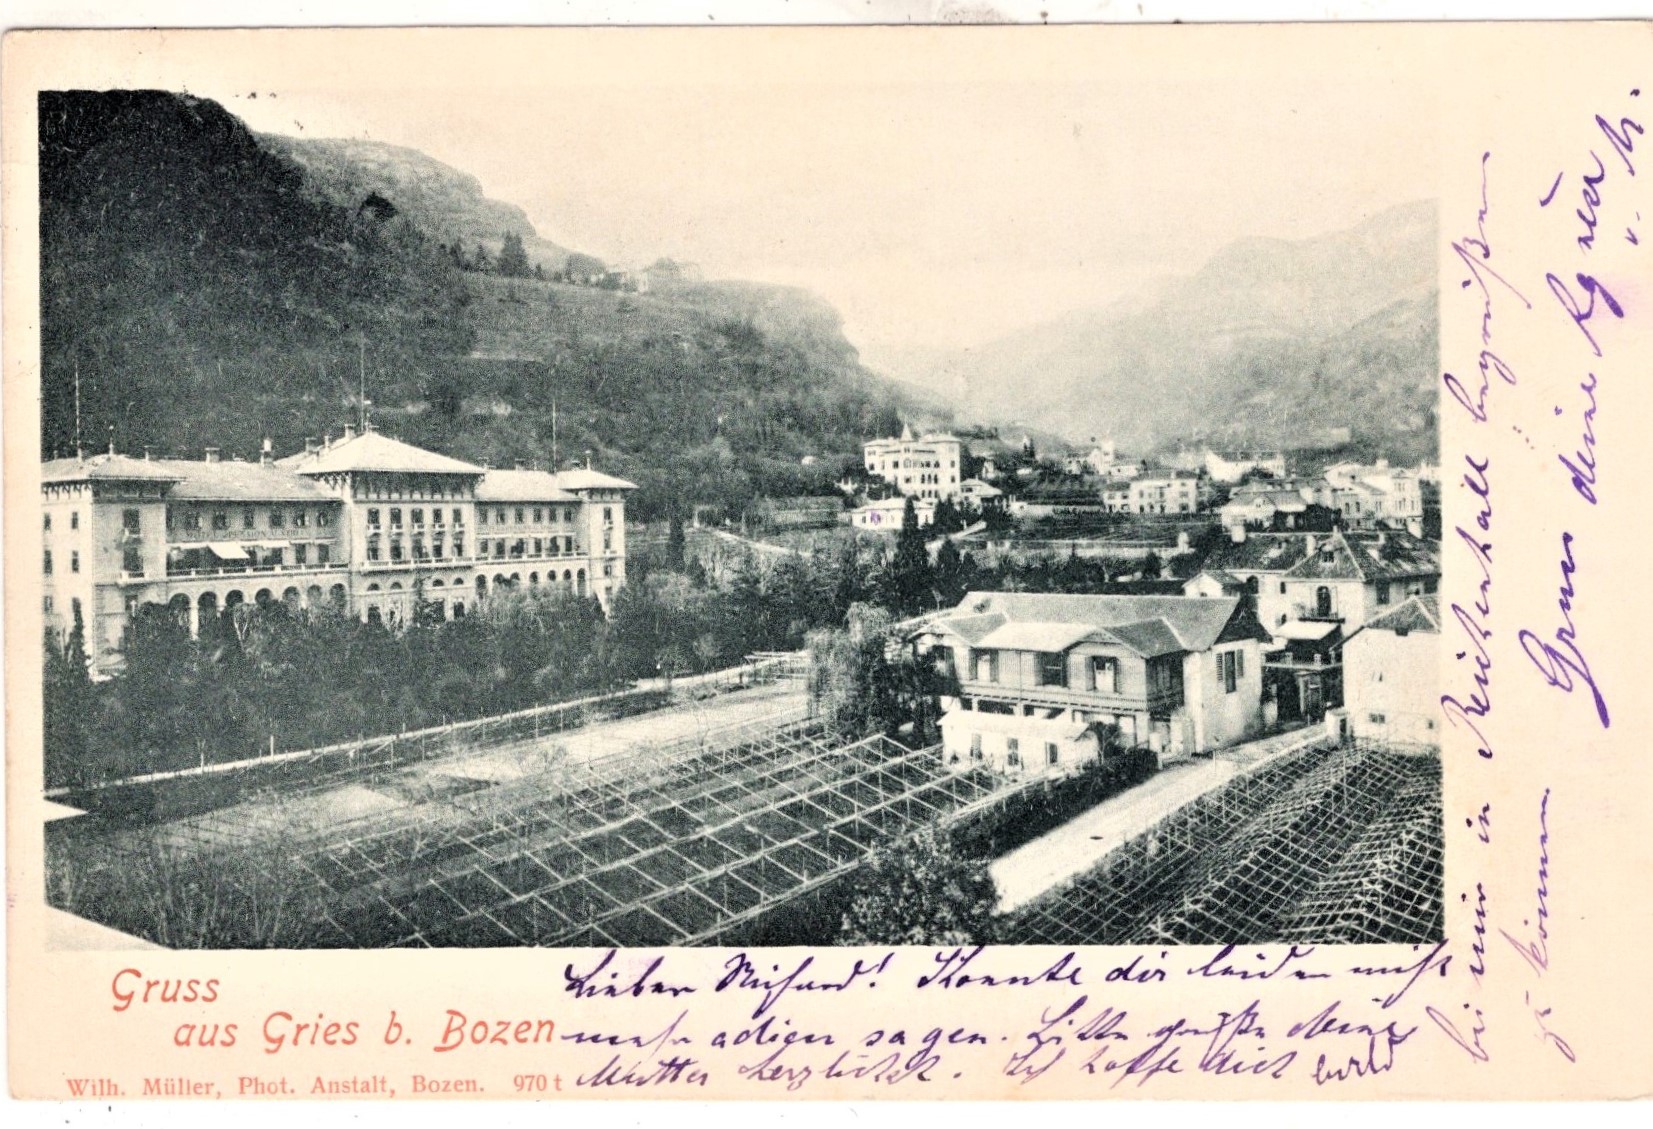 HOTEL
Gruss
aus Gries b. Bozen
Wilh. Müller, Phot. Anstalt, Bozen. 970 t
Lieber Richard! Konnte dir leider nicht
mehr adieu sagen. Bitte grüße deine
Mutter herzlichst. Ich hoffe dich bald
bei mir in Reichenhall begrüßen
zu können.
Gruss deine
v. M.